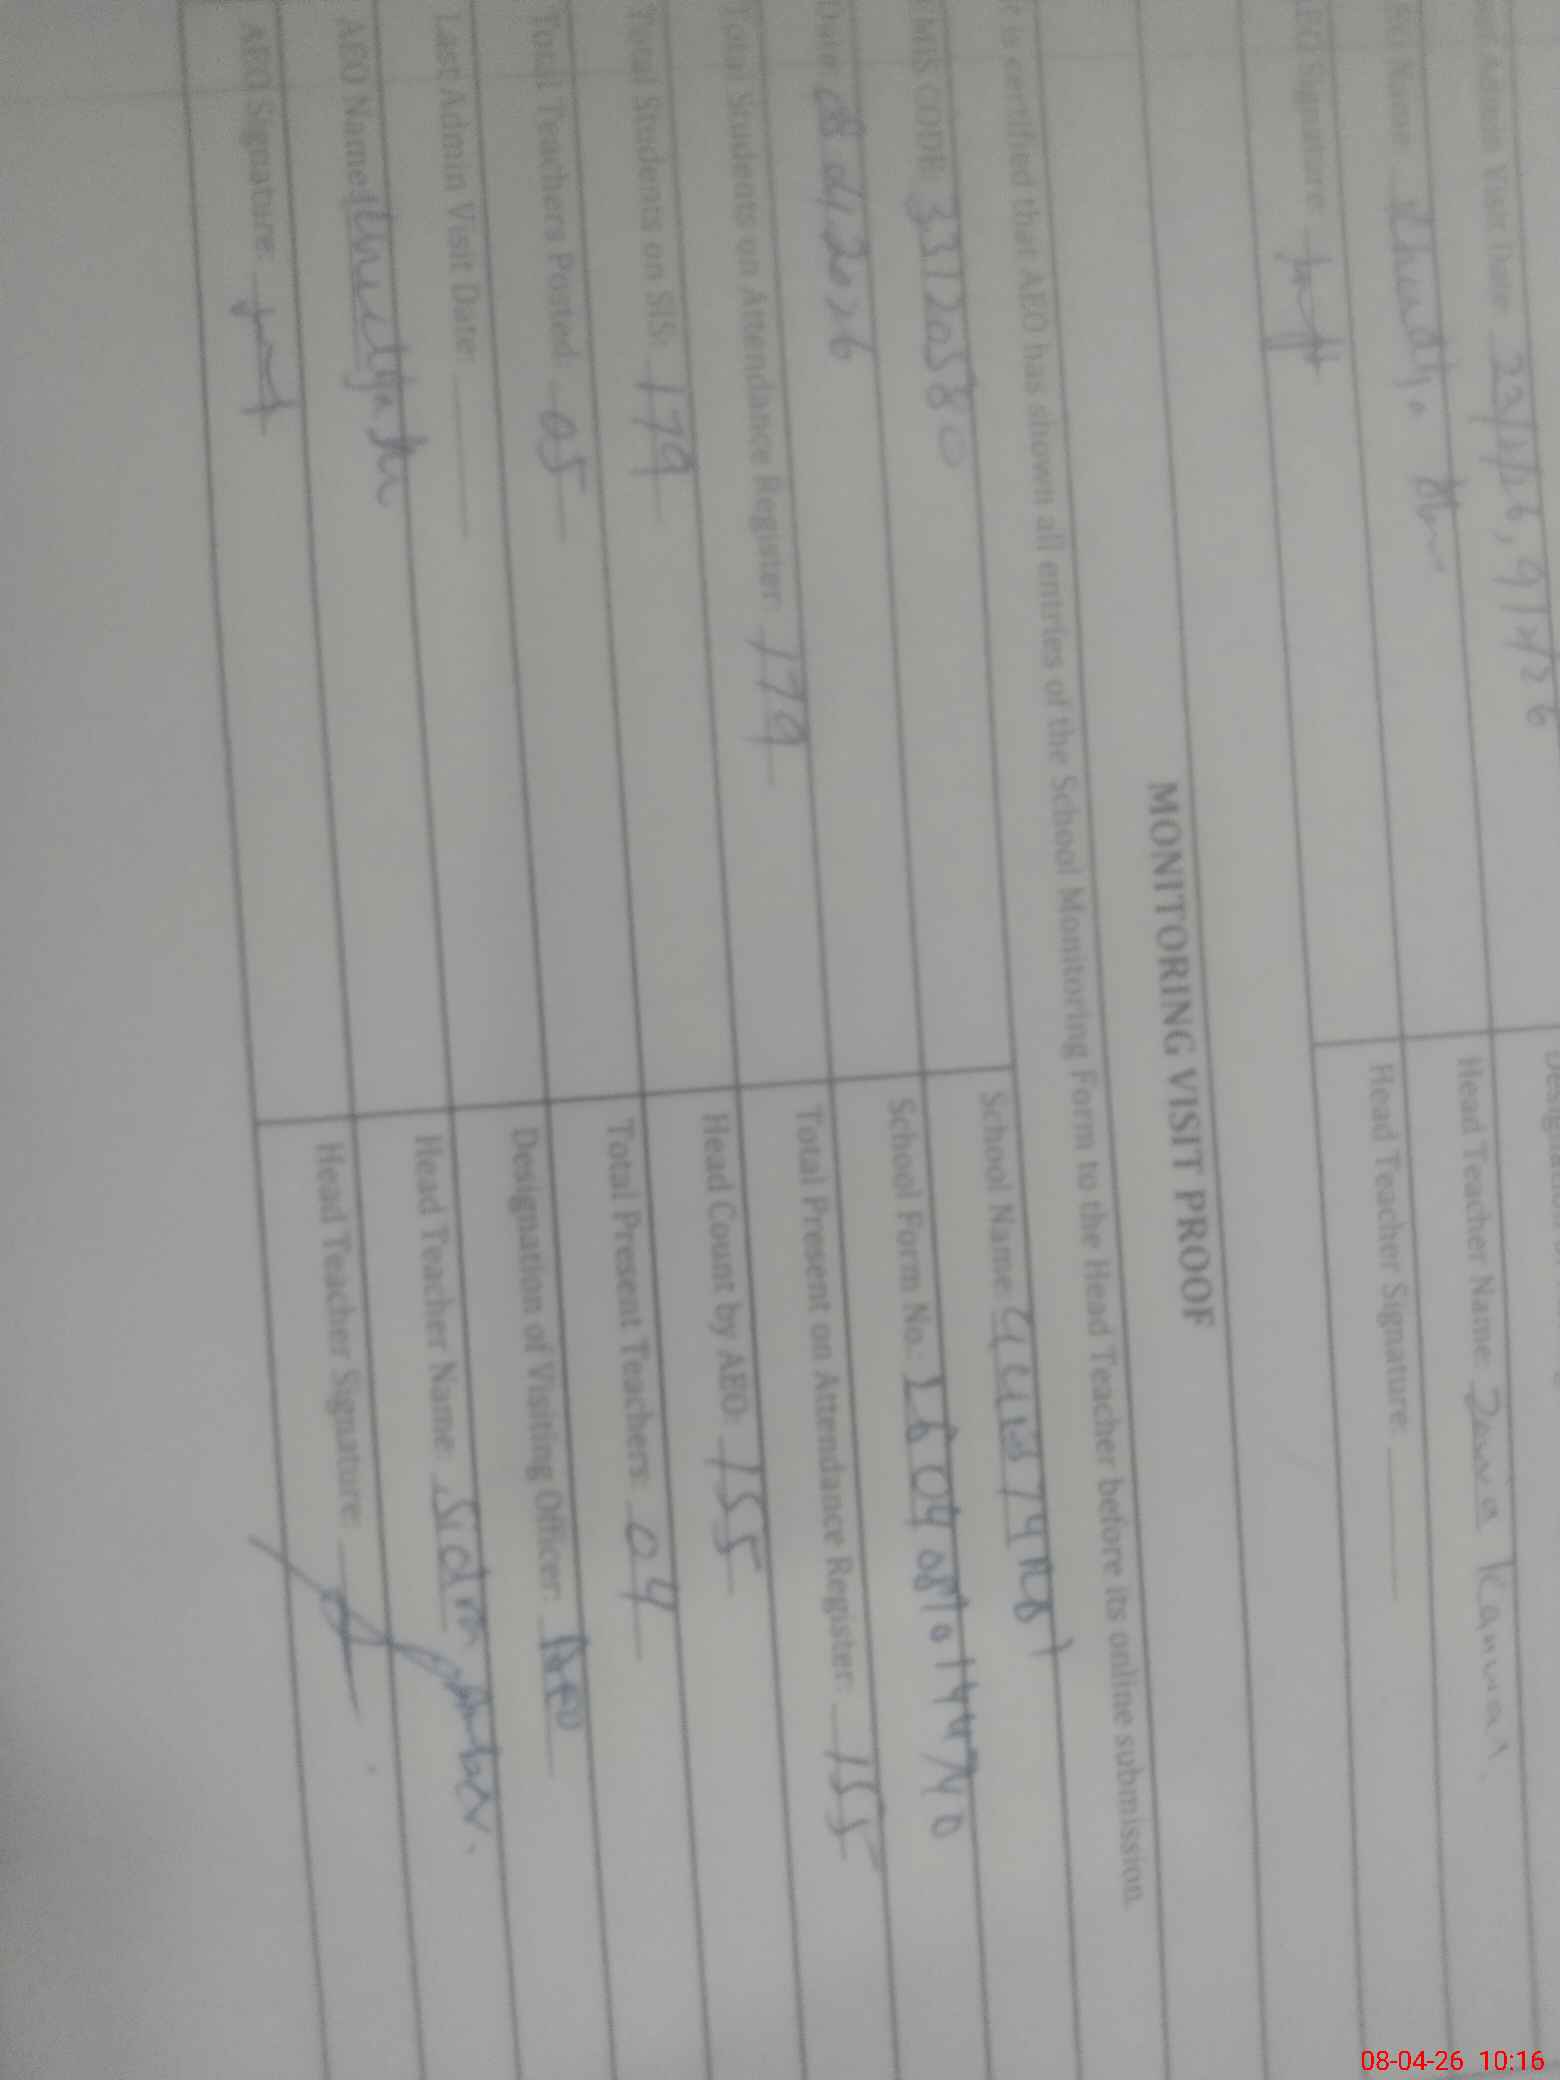 Admin Visit Date: 22/1/26, 9/2/26
Name:
Head Teacher Name: Kanwal.
AEO Signature:
Head Teacher Signature:
MONITORING VISIT PROOF
It is certified that AEO has shown all entries of the School Monitoring Form to the Head Teacher before its online submission.
EMIS CODE: 33120580
School Name:
Date: 8 04 2026
School Form No.:
Total Students on Attendance Register: 179
Total Present on Attendance Register: 155
Total Students on SIS: 179
Head Count by AEO: 155
Total Teachers Posted: 05
Total Present Teachers: 04
Last Admin Visit Date:
Designation of Visiting Officer: AEO
AEO Name:
Head Teacher Name: Sidra
AEO Signature:
Head Teacher Signature:
08-04-26 10:16